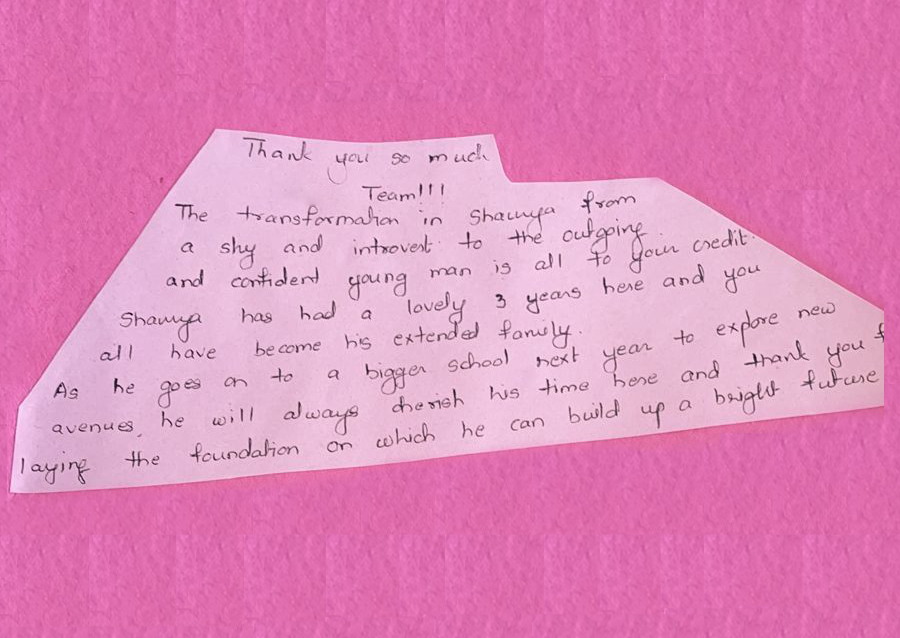 Thank you so much
Team!!!
The transformation in Shaurya from
a shy and introvert to the outgoing
and confident young man is all to your credit.
Shaurya has had a lovely 3 years here and you
all have become his extended family.
As he goes on to a bigger school next year to explore new
avenues, he will always cherish his time here and thank you
laying the foundation on which he can build up a bright future